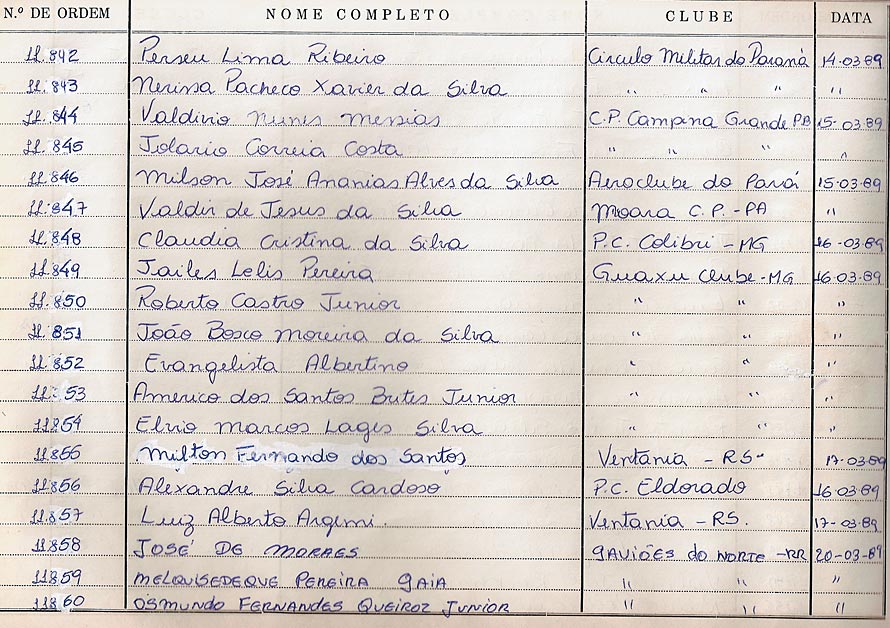 N.º DE ORDEM NOME COMPLETO CLUBE DATA
11.842 Perseu Lima Ribeiro Circulo Militar do Paraná 14-03-89
11.843 Nerissa Pacheco Xavier da Silva " " " "
11.844 Valdivio Nunes Messias C.P. Campina Grande PB 15-03-89
11.845 Jolario Correia Costa " " " "
11.846 Milson José Ananias Alves da Silva Aeroclube do Pará 15.03.89
11.847 Valdir de Jesus da Silva Moara C.P. - PA "
11.848 Claudia Cristina da Silva P.C. Colibri - MG 16-03-89
11.849 Jailes Lelis Pereira Guaxu Clube - MG 16.03-89
11.850 Roberto Castro Junior " " "
11.851 João Bosco Moreira da Silva " " "
11.852 Evangelista Albertino " " "
11.853 Americo dos Santos Butes Junior " " "
11854 Elvio Marcos Lages Silva " " "
11855 Milton Fernando dos Santos Ventania - RS - 17-03-89
11856 Alexandre Silva Cardoso P.C. Eldorado 16 03-89
11857 Luiz Alberto Argemi. Ventania - RS. 17-03-89
11858 JOSÉ DE MORAES GAVIÕES do NORTE - RR 20-03-89
11859 MELQUISEDEQUE PEREIRA GAIA " " "
11860 OSMUNDO FERNANDES QUEIROZ JUNIOR " " "